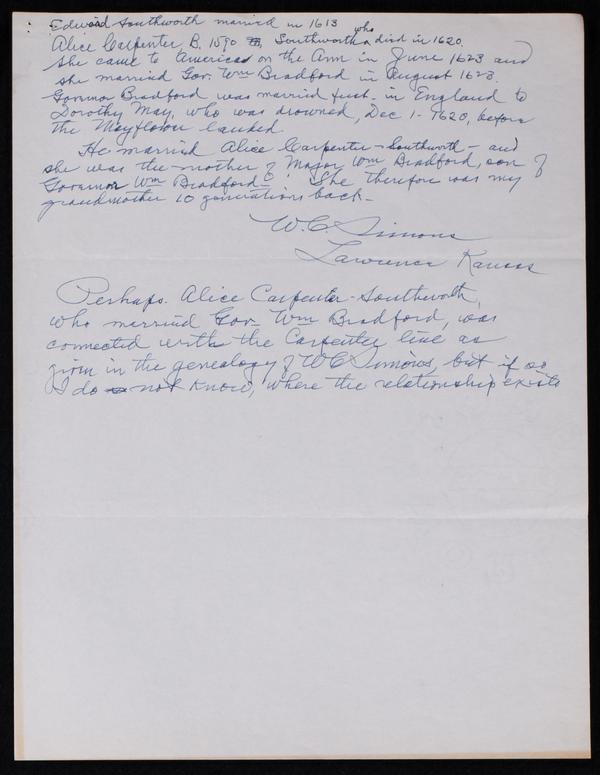 Edward Southworth married in 1613
Alice Carpenter, B. 1590 Southworth who died in 1620.
She came to America on the Ann in June 1623 and
she married Gov. Wm Bradford in August 1623.
Governor Bradford was married first in England to
Dorothy May, who was drowned, Dec 1 - 1620, before
the Mayflower landed.
He married Alice Carpenter - Southworth - and
she was the mother of Major Wm Bradford, son of
Governor Wm Bradford. She therefore was my
grandmother 10 generations back -
W.C. Simons
Lawrence Kansas
Perhaps Alice Carpenter - Southworth,
who married Gov Wm Bradford, was
connected with the Carpenter line as
given in the genealogy of W C Simons, but if so
I do not know, where the relationship exists